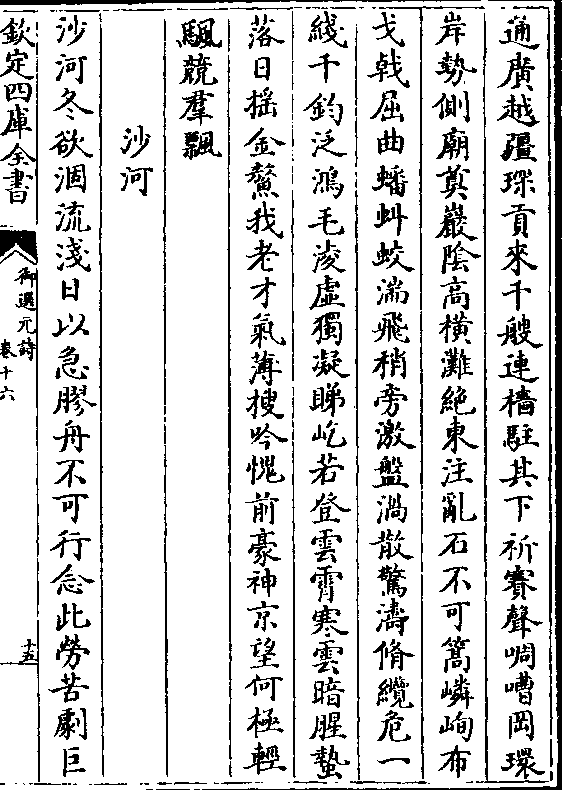 通廣越疆琛貢來千艘連檣駐其下祈賽聲啁嘈岡環
岸勢側廟奠巖陰高橫灘絶東注亂石不可篙嶙峋布
戈㦸屈曲蟠虯蛟湍飛稍旁激盤渦散驚濤脩纜危一
綫千鈞泛鴻毛凌虛獨凝睇屹若登雲霄寒雲暗腥蟄
落日揺金鰲我老才氣薄搜吟愧前豪神京望何極輕
颿競羣飄
沙河
沙河冬欲涸流淺日以急膠舟不可行念此勞苦劇巨
欽定四庫全書
御選元詩
卷十六
十五